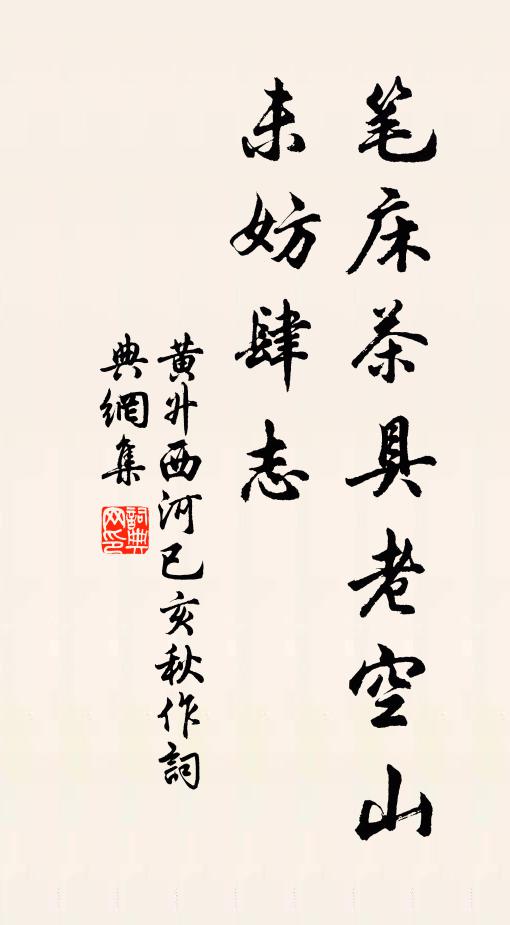 笔床茶具老空山
未妨肆志
黄升西河己亥秋作詞
典網集
詞典
网印